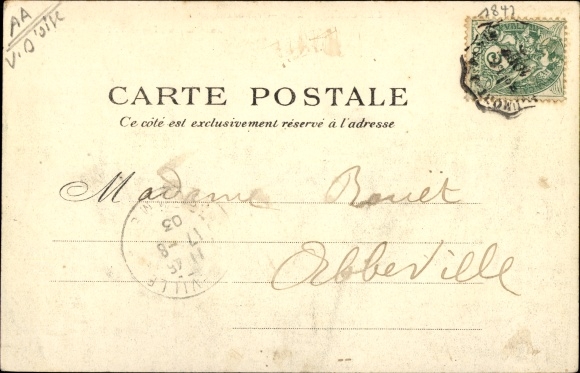 AA
V. D'OISE
1847
CARTE POSTALE
Ce côté est exclusivement réservé à l'adresse
Madame Bouët
Abbeville
VILLE
45
17 -8
03